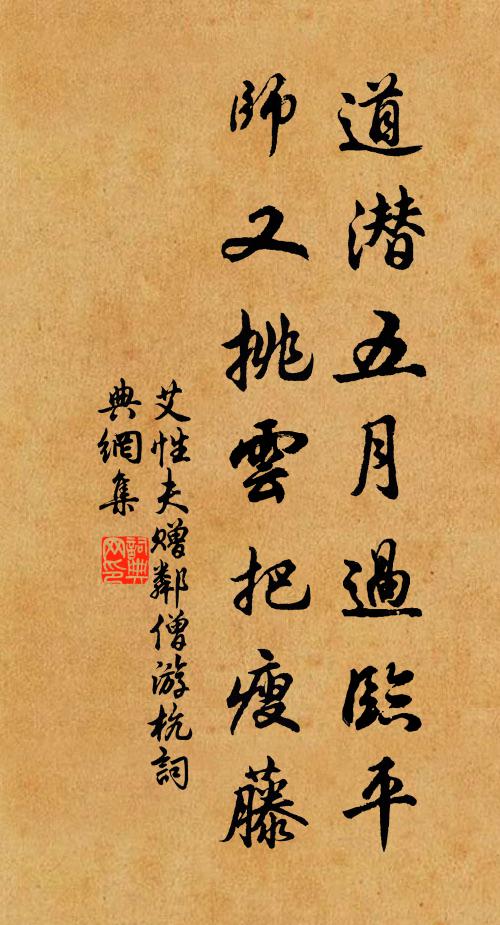 道潜五月過臨平
師又挑雲把瘦藤
艾性夫贈鄰僧游杭詞
典網集
詞典
网印